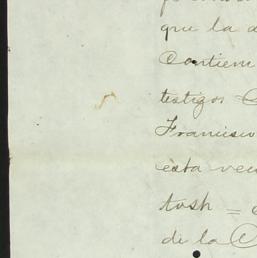 que la
Contiem
testigos
Francisco
esta ven
tosh =
de la C